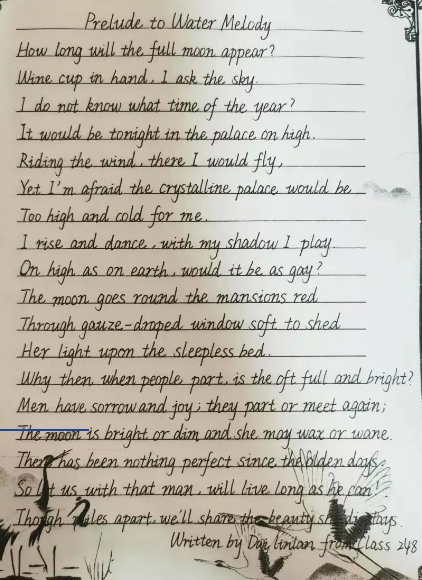 Prelude to Water Melody
How long will the full moon appear?
Wine cup in hand, I ask the sky.
I do not know what time of the year?
It would be tonight in the palace on high.
Riding the wind, there I would fly,
Yet I'm afraid the crystalline palace would be
Too high and cold for me.
I rise and dance, with my shadow I play
On high as on earth, would it be as gay?
The moon goes round the mansions red
Through gauze-draped window soft to shed
Her light upon the sleepless bed.
Why then when people part, is the oft full and bright?
Men have sorrow and joy; they part or meet again;
The moon is bright or dim and she may wax or wane.
There has been nothing perfect since the olden days
So let us with that man, will live long as he can!
Though miles apart, we'll share the beauty she displays.
Written by Dai linlan from Class 248